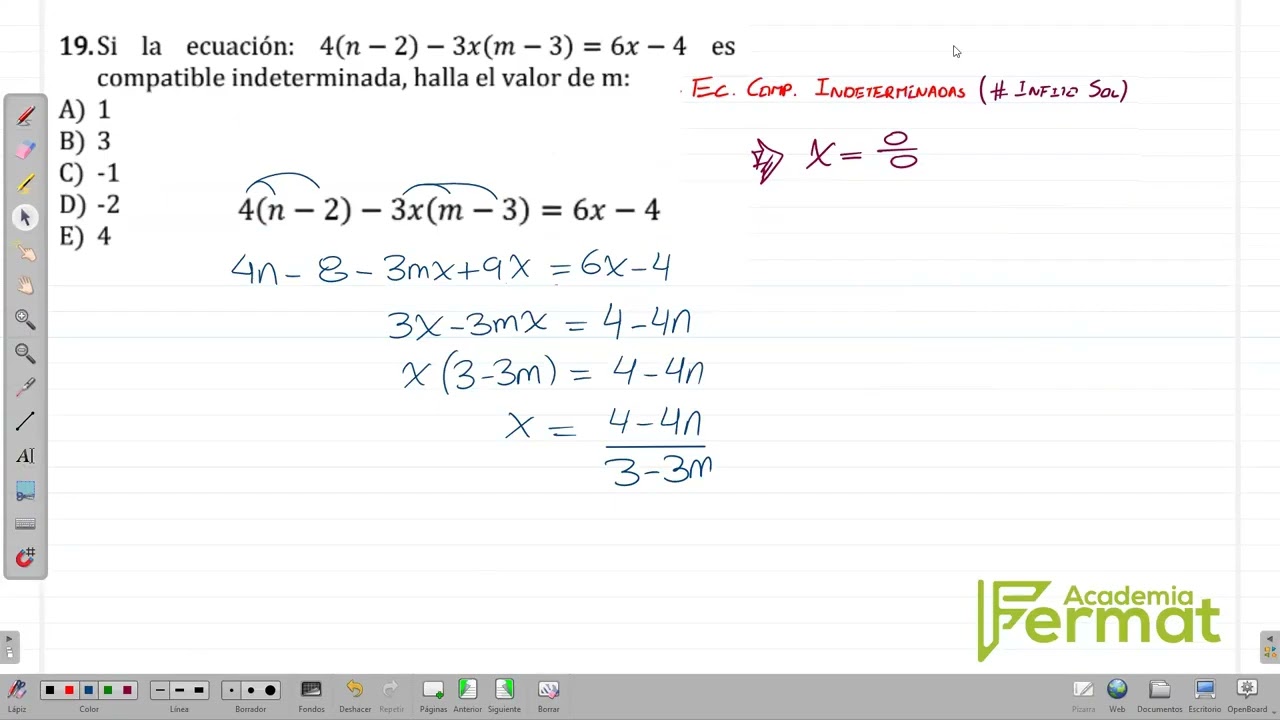 19. Si la ecuación: 4(n − 2) − 3x(m − 3) = 6x − 4 es
compatible indeterminada, halla el valor de m:
A) 1
B) 3
C) -1
D) -2
E) 4
Ec. Comp. Indeterminadas (# Infito Sol)
x = 0/0
4(n − 2) − 3x(m − 3) = 6x − 4
4n − 8 − 3mx + 9x = 6x − 4
3x − 3mx = 4 − 4n
x (3 − 3m) = 4 − 4n
x = 4 − 4n
3 − 3m
Academia
Fermat
Lápiz
Color
Línea
Borrador
Fondos
Deshacer
Repetir
Páginas
Anterior
Siguiente
Borrar
Pizarra
Web
Documentos
Escritorio
OpenBoard